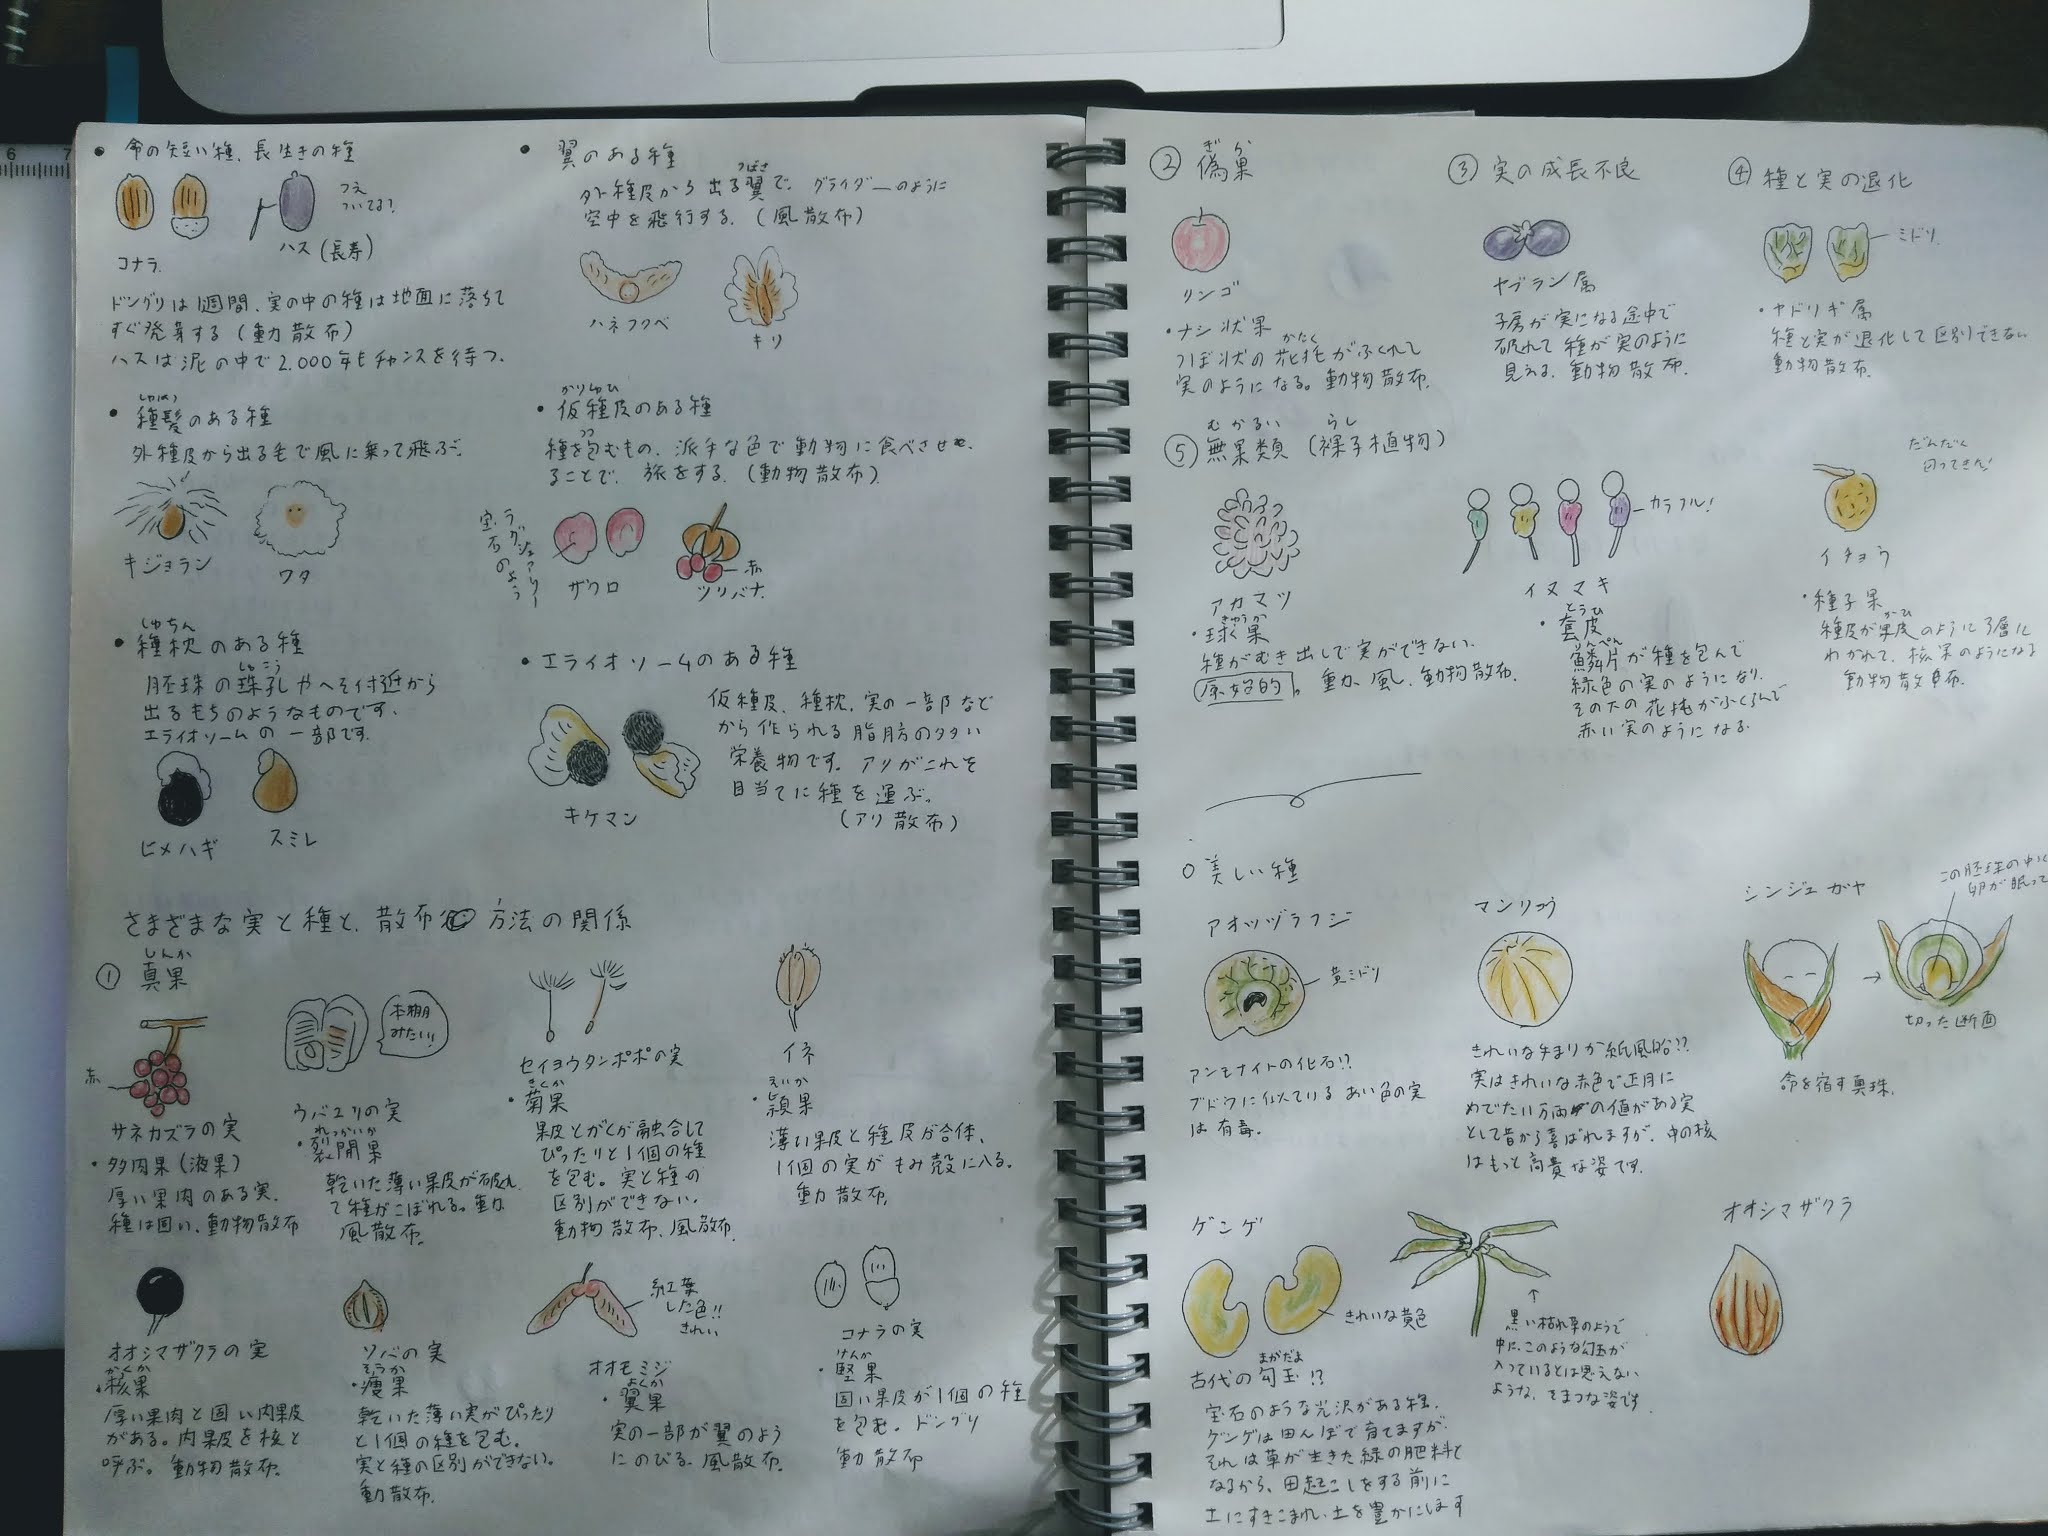 6 7
・命の短い種、長生きの種
つえ
ついてる?
コナラ
ハス(長寿)
ドングリは1週間、実の中の種は地面に落ちて
すぐ発芽する(動力散布)
ハスは泥の中で2,000年もチャンスを待つ。
・種髪のある種
しゅはつ
外種皮から出る毛で風に乗って飛ぶ。
キジョラン
ワタ
・種枕のある種
しゅちん
胚珠の珠孔やへそ付近から
しゅこう
出るもちのようなものです。
エライオソームの一部です。
ヒメハギ
スミレ
・翼のある種
外種皮から出る翼で、グライダーのように
つばさ
空中を飛行する。(風散布)
ハネフクベ
キリ
・仮種皮のある種
かりしゅひ
種を包むもの、派手な色で動物に食べさせ
つつ
ることで、旅をする。(動物散布)
ラグジュアリー
宝石のよう
ザクロ
赤
ツリバナ
・エライオソームのある種
仮種皮、種枕、実の一部など
から作られる脂肪の多い
栄養物です。アリがこれを
目当てに種を運ぶ。
(アリ散布)
キケマン
さまざまな実と種と、散布 方法の関係
① 真果
しんか
赤
サネカズラの実
・多肉果(液果)
厚い果肉のある実。
種は固い、動物散布
本棚
みたい!
ウバユリの実
・裂開果
れっかいか
乾いた薄い果皮が破れ
て種がこぼれる。動力
風散布。
セイヨウタンポポの実
・菊果
きくか
果皮とがくが融合して
ぴったりと1個の種
を包む。実と種の
区別ができない。
動物散布、風散布
イネ
・穎果
えいか
薄い果皮と種皮が合体、
1個の実がもみ殻に入る。
動力散布。
オオシマザクラの実
・核果
かくか
厚い果肉と固い内果皮
がある。内果皮を核と
呼ぶ。動物散布。
ソバの実
・痩果
そうか
乾いた薄い実がぴったり
と1個の種を包む。
実と種の区別ができない。
動力散布。
紅葉
した色!!
きれい
オオモミジ
・翼果
よくか
実の一部が翼のよう
にのびる。風散布。
コナラの実
・堅果
けんか
固い果皮が1個の種
を包む。ドングリ
動力散布
② 偽果
ぎか
リンゴ
・ナシ状果
つぼ状の花托がふくれて
かたく
実のようになる。動物散布。
③ 実の成長不良
ヤブラン属
子房が実になる途中で
破れて種が実のように
見える。動物散布。
④ 種と実の退化
ミドリ
・ヤドリギ属
種と実が退化して区別できない
動物散布。
⑤ 無果類(裸子植物)
むかるい らし
アカマツ
・球果
きゅうか
種がむき出しで実ができない。
原始的。動力、風、動物散布。
カラフル!
イヌマキ
・套皮
とうひ
鱗片が種を包んで
りんぺん
緑色の実のようになり、
その下の花托がふくらんで
赤い実のようになる
だんだん
イチョウ
・種子果
種皮が果皮のように3層に
かひ
わかれて、核果のようになる
動物散布。
○美しい種
アオツヅラフジ
黄ミドリ
アンモナイトの化石!?
ブドウに似ているあい色の実
は有毒。
マンリョウ
きれいな手まりか紙風船!?
実はきれいな赤色で正月に
めでたい万両の値がある実
として昔から喜ばれますが、中の核
はもっと高貴な姿です。
シンジュガヤ
この胚珠の中に
卵が眠って
切った断面
命を宿す真珠。
ゲンゲ
きれいな黄色
古代の勾玉!?
まがたま
宝石のような光沢がある種。
ゲンゲは田んぼで育てますが、
それは草が生きた緑の肥料と
なるから、田起こしをする前に
土にすきこまれ、土を豊かにします
黒い枯れ草のようで
中に、このような勾玉が
入っているとは思えない
ような、そまつな姿です
オオシマザクラ